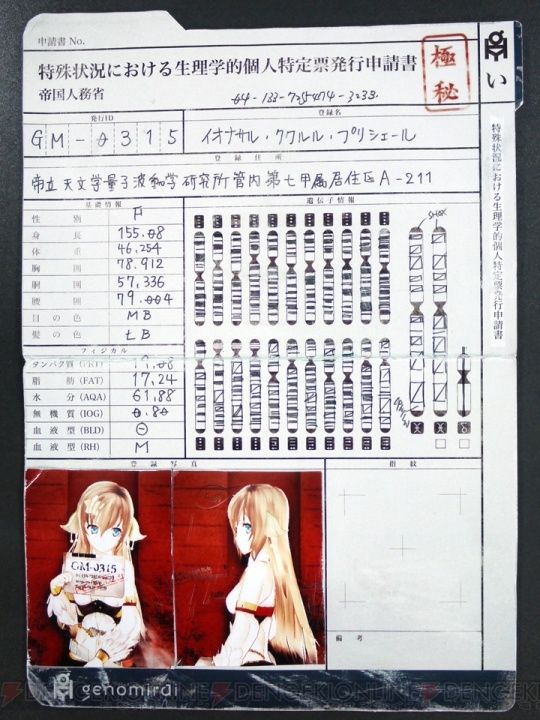 申請書 No.
特殊状況における生理学的個人特定票発行申請書
帝国人務省
極秘
い
特殊状況における生理学的個人特定票発行申請書
発行ID
登録名
GM-0315
イオナサル・ククルル・プリシェール
登録住所
帝立天文学量子波動学研究所管内第七甲属居住区A-211
基礎情報
遺伝子情報
性別 F
身長 155.08
体重 46.254
胸囲 78.912
胴囲 57.336
腰囲 79.004
目の色 MB
髪の色 LB
フィジカル
タンパク質(PRT) 19.08
脂肪(FAT) 17.24
水分(AQA) 61.88
無機質(IOG) 0.80
血液型(BLD) Θ
血液型(RH) M
登録写真
指紋
GM-0315
備考
genomirai
DENGEKIONLINE